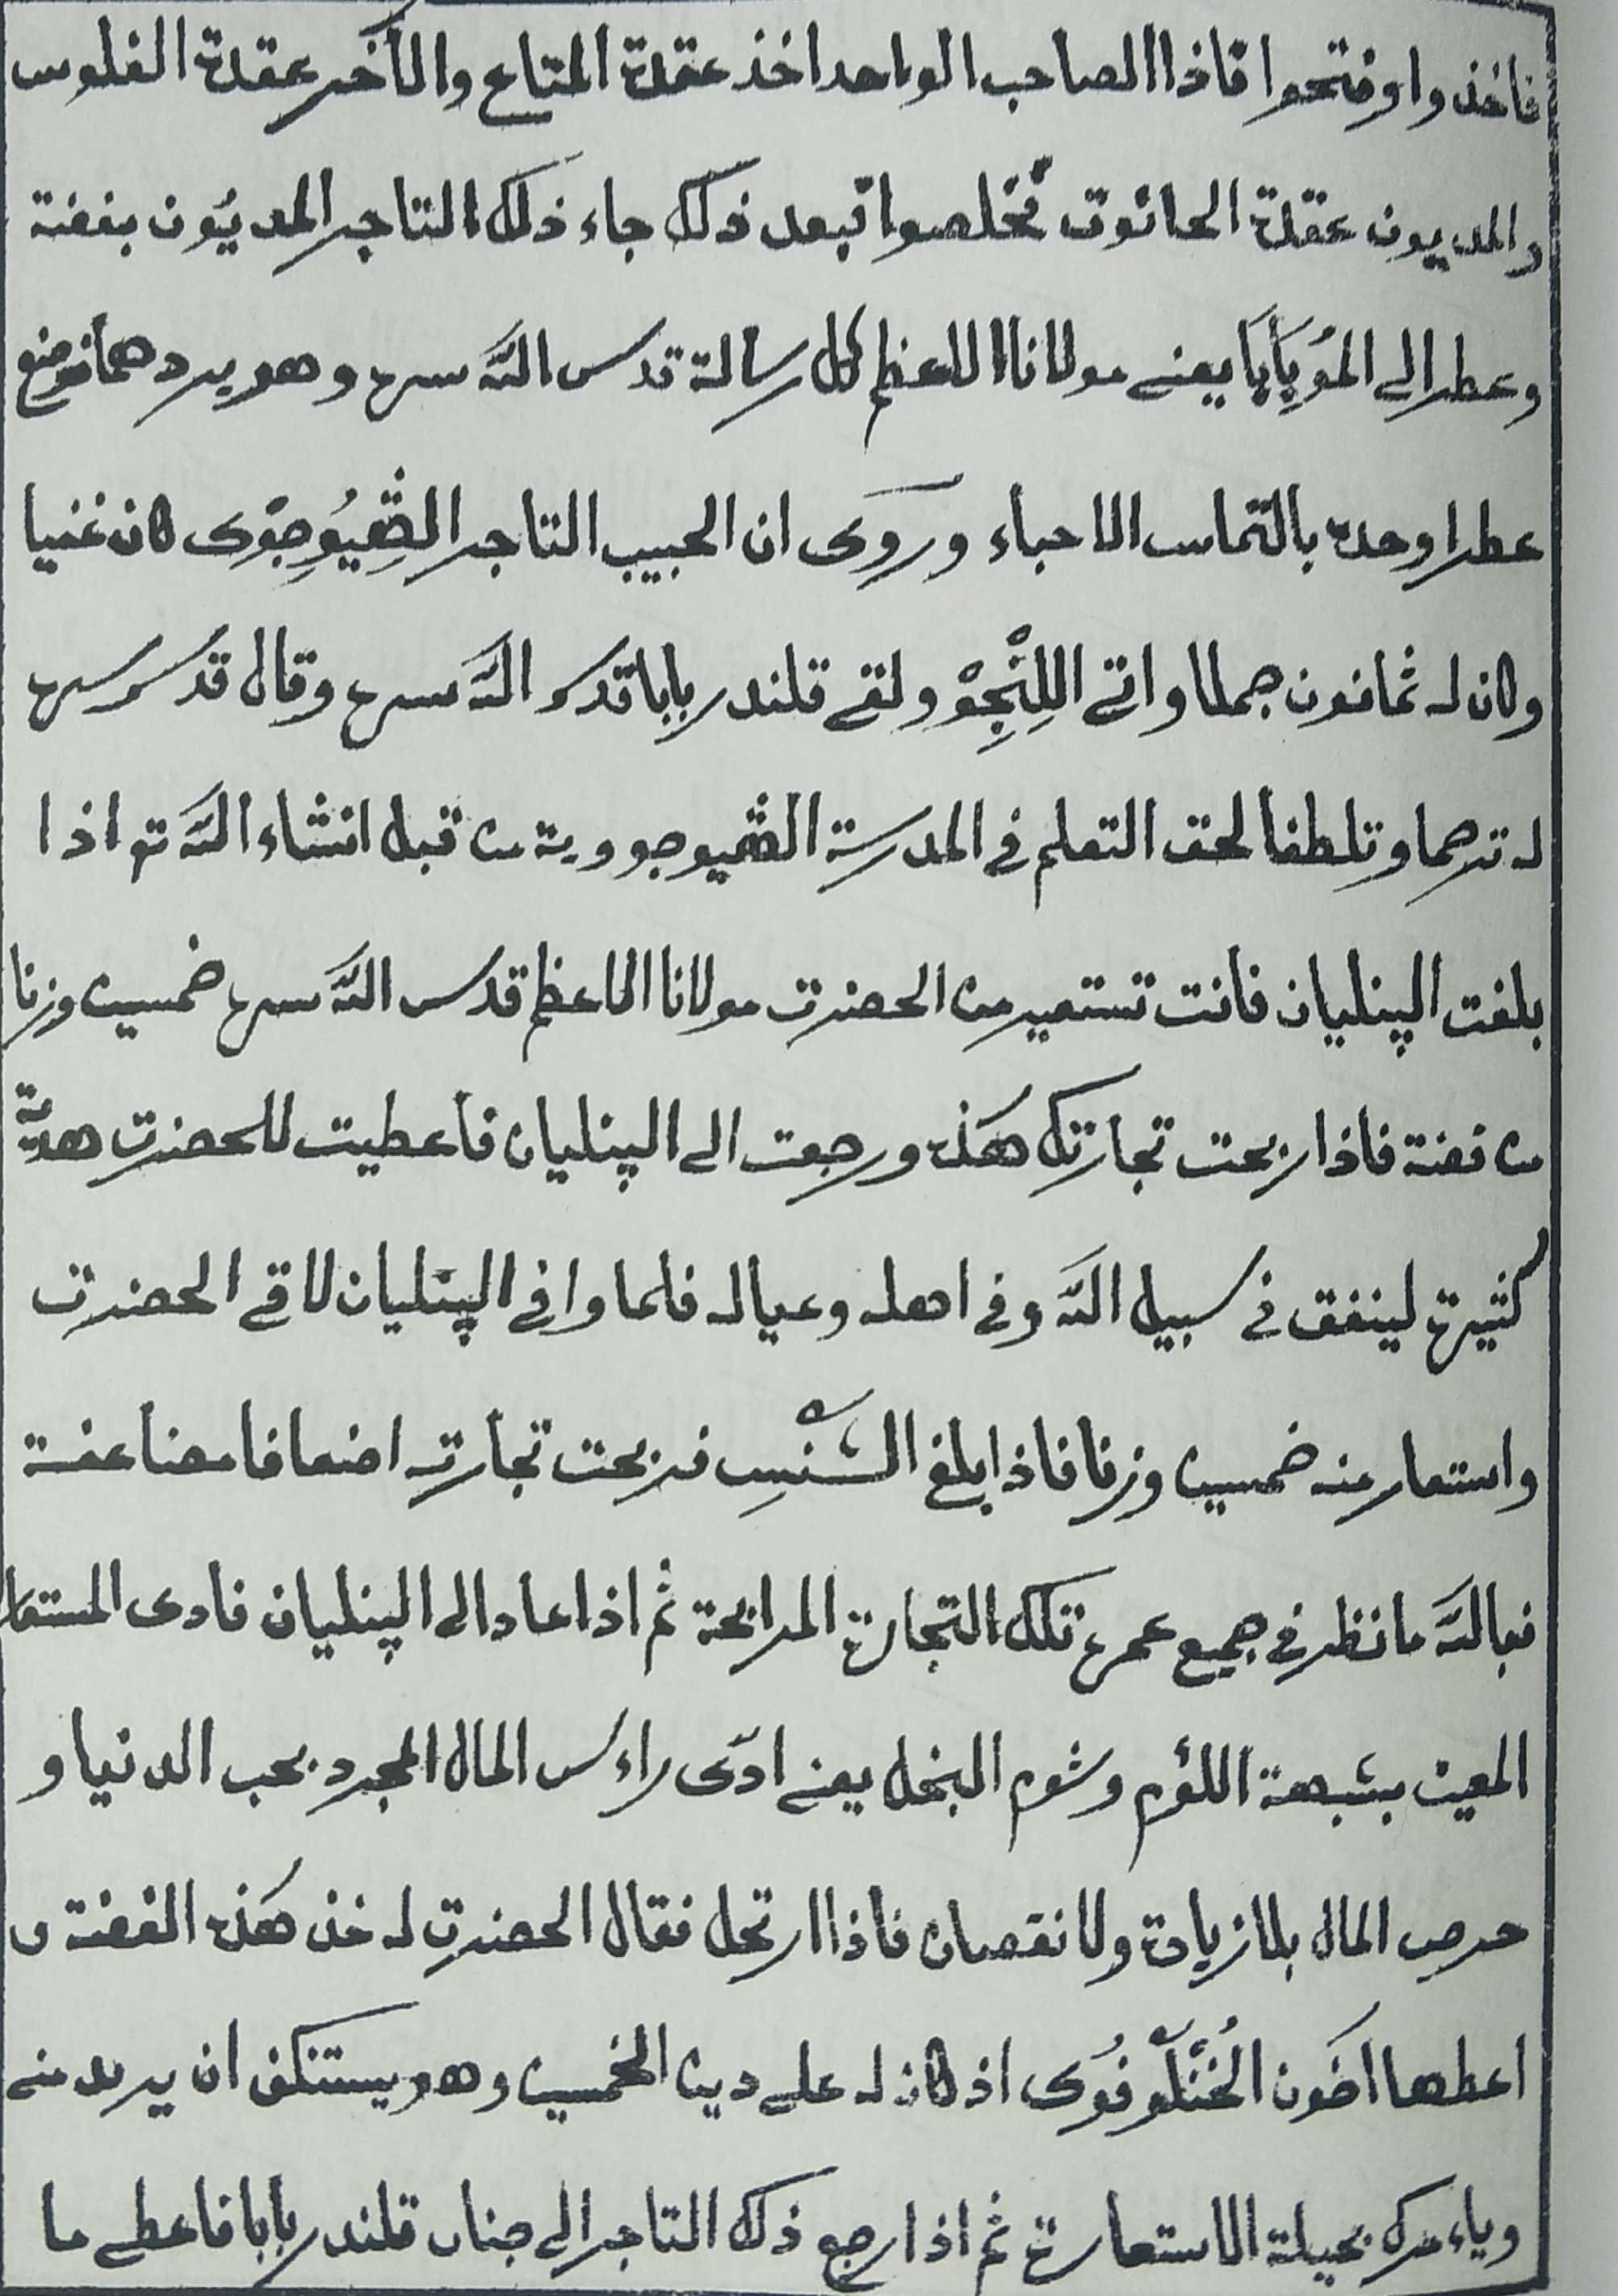 فاخذوا وفتحوا فاذا الصاحب الواحد اخذ عقدة المتاع والآخر عقدة الفلوس
والمديون عقدة الحانوت فخلصوا فبعد ذلك جاء ذلك التاجر المديون بفضة
وعطر الى المُوِيَابَا يعنے مولانا الاعظم لكل رسالة قدس اللّه سره وهو يردهما فوضع
عطرا وحده بالتماس الاحباء وروى ان الحبيب التاجر الضِّيُوجِوّى كان غنيا
وكان له ثمانون جملا واتى اللِنْجِوْ ولقے قلندر بابا قدس اللّه سره وقال قدس سره
له ترحما وتلطفا لحق التعلم فى المدرسة الضيوجووية من قبل انشاء اللّه تع اذا
بلغت الپنليان فانت تستعير من الحضرت مولانا الاعظم قدس اللّه سره خمسين وزنا
من فضة فاذا ربحت تجارتك هٰذه ورجعت الى الپنليان فاعطيت للحضرت هديّة
كثيرة لينفق فى سبيل اللّه وفى اهله وعياله فلما وافى الپنليان لاقے الحضرت
واستعار منه خمسين وزنا فاذا بلغ الشنسِ فربحت تجارته اضعافا مضاعفة
فبالله ما نظر فى جميع عمره تلك التجارة المرابحة ثم اذا عاد الى الپنليان فادى المستعار
المعين بشبهة اللؤم وشوم البخل يعنے ادّى راءس المال المجرد بحب الدنيا و
حرص المال بلا زيادة ولا نقصان فاذا ارتحل فقال الحضرت له خذ هٰذه الفضة و
اعطها اخون الخُنَلَّوفُوى اذ كان له على دين الخمسين وهو يستنكف ان يرد منے
وياءمرك بحيلة الاستعارة ثم اذا رجع ذلك التاجر الى جناب قلندر بابا فاعطے ما